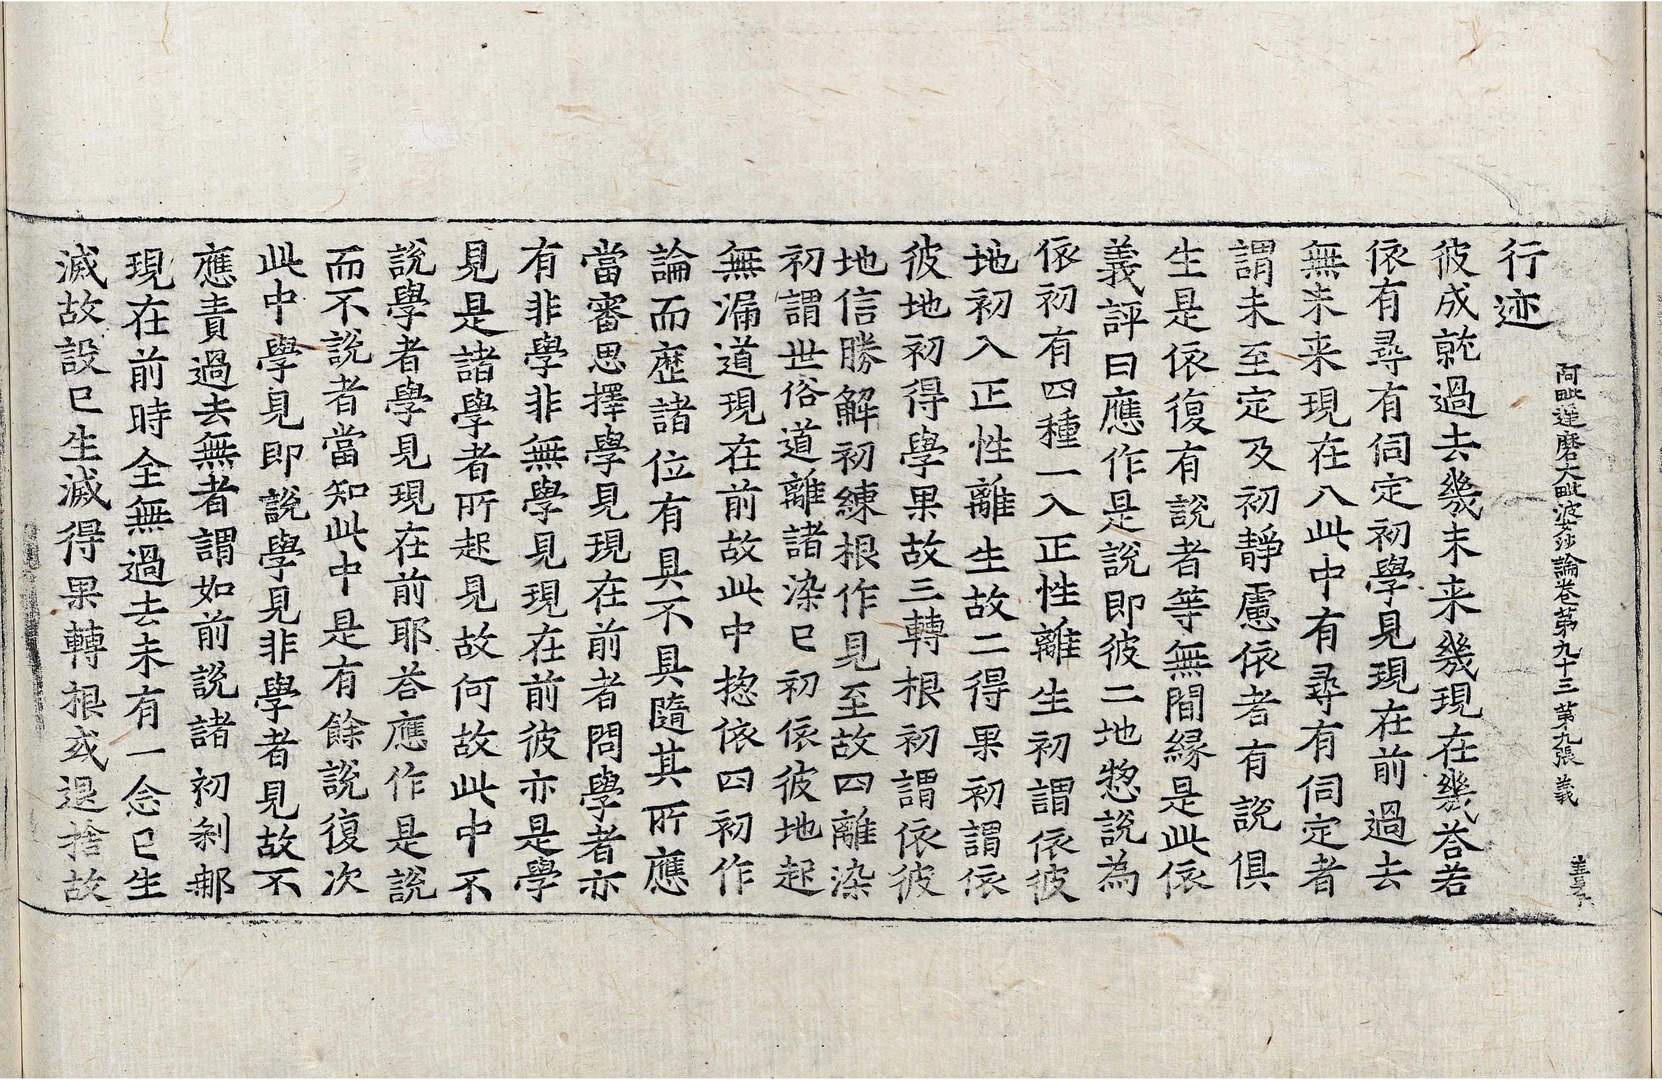 阿毗達磨大毗婆沙論卷第九十三 第九張 義
行迹
彼成就過去幾未来幾現在幾荅若
依有尋有伺定初學見現在前過去
無未来現在八此中有尋有伺定者
謂未至定及初靜慮依者有說俱
生是依復有說者等無間緣是此依
義評曰應作是說即彼二地惣說為
依初有四種一入正性離生初謂依彼
地初入正性離生故二得果初謂依
彼地初得學果故三轉根初謂依彼
地信勝解初練根作見至故四離染
初謂世俗道離諸染已初依彼地起
無漏道現在前故此中惣依四初作
論而歷諸位有具不具隨其所應
當審思擇學見現在前者問學者亦
有非學非無學見現在前彼亦是學
見是諸學者所起見故何故此中不
說學者學見現在前耶荅應作是說
而不說者當知此中是有餘說復次
此中學見即說學見非學者見故不
應責過去無者謂如前說諸初剎那
現在前時全無過去未有一念已生
滅故設已生滅得果轉根或退捨故